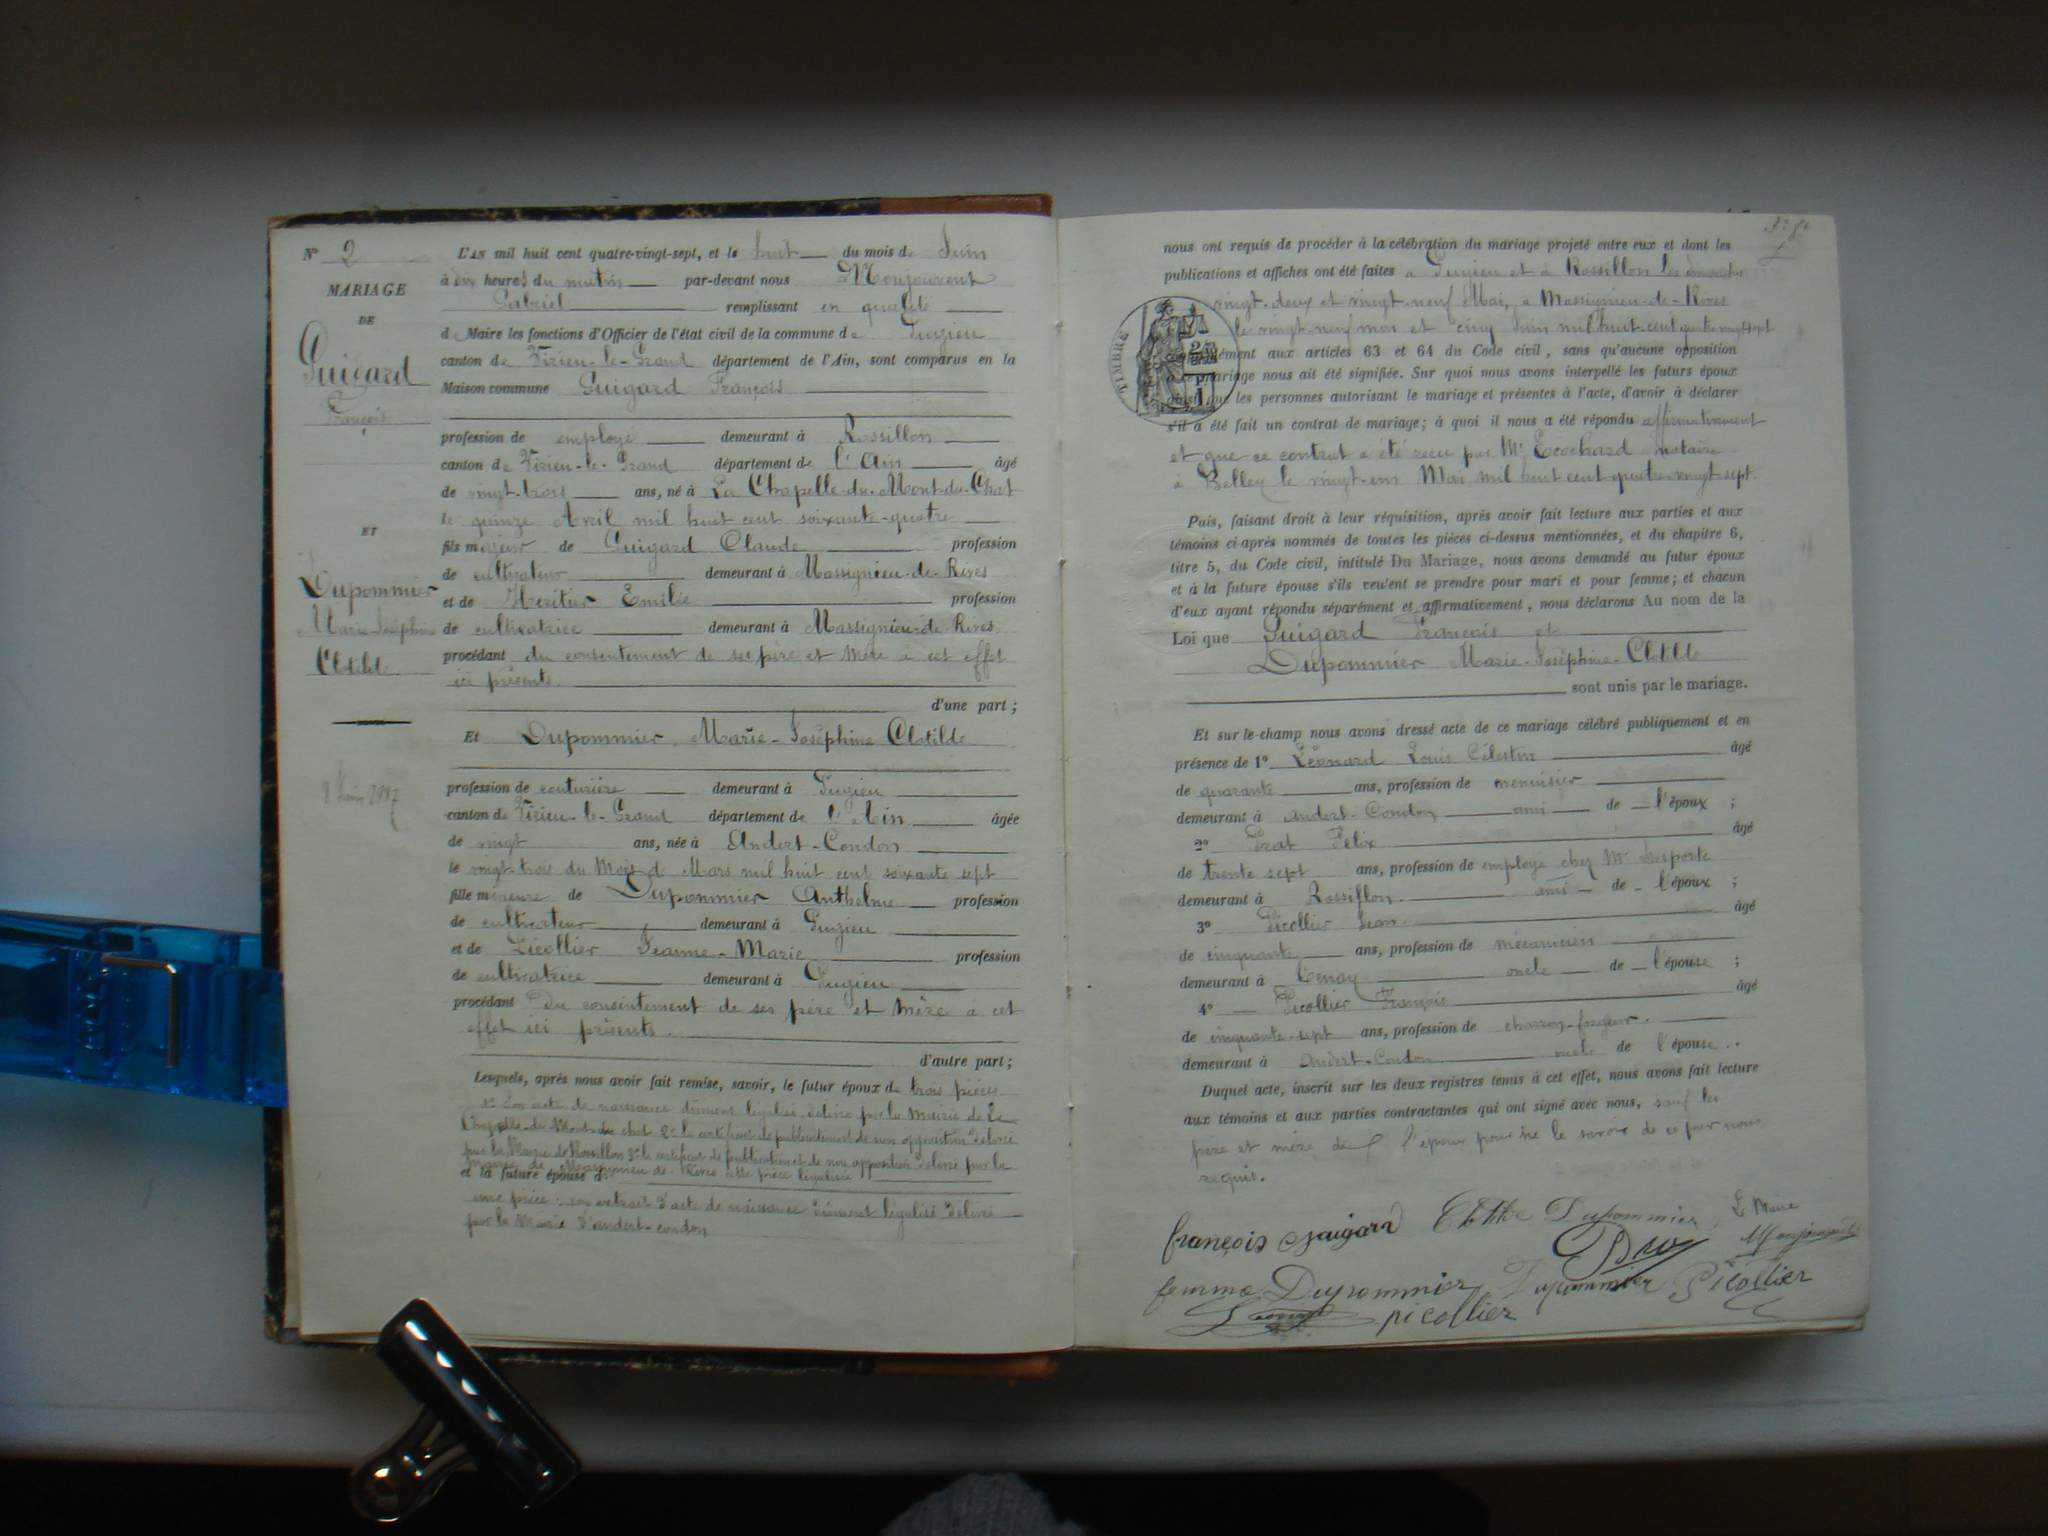 N° 2
MARIAGE
DE
Guigard
François
ET
Dupommier
Marie-Joséphine
Clotilde
8 Juin 1887
L'AN mil huit cent quatre-vingt-sept, et le huit du mois de Juin
à dix heures du matin par-devant nous Monjouvent
Gabriel remplissant en qualité
de Maire les fonctions d'Officier de l'état civil de la commune de Pugieu
canton de Virieu-le-Grand département de l'Ain, sont comparus en la
Maison commune Guigard François
profession de employé demeurant à Rossillon
canton de Virieu-le-Grand département de l'Ain âgé
de vingt-trois ans, né à La Chapelle-du-Mont-du-Chat
le quinze Avril mil huit cent soixante-quatre
fils majeur de Guigard Claude profession
de cultivateur demeurant à Massignieu-de-Rives
et de Héritier Emilie profession
de cultivatrice demeurant à Massignieu-de-Rives
procédant du consentement de ses père et mère à cet effet
ici présents
d'une part ;
Et Dupommier Marie-Joséphine Clotilde
profession de couturière demeurant à Pugieu
canton de Virieu-le-Grand département de l'Ain âgée
de vingt ans, née à Andert-Condon
le vingt-trois du Mois de Mars mil huit cent soixante sept
fille mineure de Dupommier Anthelme profession
de cultivateur demeurant à Pugieu
et de Picollier Jeanne-Marie profession
de cultivatrice demeurant à Pugieu
procédant du consentement de ses père et mère à cet
effet ici présents.
d'autre part ;
Lesquels, après nous avoir fait remise, savoir, le futur époux de trois pièces
1° Son acte de naissance dûment légalisé délivré par la Mairie de La
Chapelle-du-Mont-du-chat 2° le certificat de publication et de non opposition délivré
par la Mairie de Rossillon 3° le certificat de publication et de non opposition délivré par la
Mairie de Massignieu de Rives cette pièce légalisée
et la future épouse de
une pièce : son extrait d'acte de naissance dûment légalisé délivré
par la Mairie d'andert-condon
nous ont requis de procéder à la célébration du mariage projeté entre eux et dont les
publications et affiches ont été faites à Pugieu et à Rossillon les dimanches
vingt-deux et vingt-neuf Mai, à Massignieu-de-Rives
le vingt-neuf mai et cinq Juin mil huit cent quatre vingt sept
TIMBRE
conformément aux articles 63 et 64 du Code civil, sans qu'aucune opposition
à ce mariage nous ait été signifiée. Sur quoi nous avons interpellé les futurs époux
ainsi que les personnes autorisant le mariage et présentes à l'acte, d'avoir à déclarer
s'il a été fait un contrat de mariage ; à quoi il nous a été répondu affirmativement
et que ce contrat a été reçu par Me Ecochard notaire
à Belley le vingt-un Mai mil huit cent quatre-vingt-sept.
Puis, faisant droit à leur réquisition, après avoir fait lecture aux parties et aux
témoins ci-après nommés de toutes les pièces ci-dessus mentionnées, et du chapitre 6,
titre 5, du Code civil, intitulé Du Mariage, nous avons demandé au futur époux
et à la future épouse s'ils veulent se prendre pour mari et pour femme ; et chacun
d'eux ayant répondu séparément et affirmativement, nous déclarons Au nom de la
Loi que Guigard François et
Dupommier Marie-Joséphine-Clotilde
sont unis par le mariage.
Et sur-le-champ nous avons dressé acte de ce mariage célébré publiquement et en
présence de 1° Léonard Louis Célestin âgé
de quarante ans, profession de menuisier
demeurant à andert-Condon ami de l'époux ;
2° Prat Félix âgé
de trente sept ans, profession de employé chez Mr
demeurant à Rossillon ami de l'époux ;
3° Picollier Jean âgé
de cinquante ans, profession de mécanicien
demeurant à Tenay oncle de l'épouse ;
4° Picollier François âgé
de cinquante-sept ans, profession de charron-forgeur
demeurant à andert-Condon oncle de l'épouse.
Duquel acte, inscrit sur les deux registres tenus à cet effet, nous avons fait lecture
aux témoins et aux parties contractantes qui ont signé avec nous, sauf les
père et mère de l'époux pour ne le savoir de ce par nous
requis.
françois Guigard Clotilde Dupommier Le Maire
Monjouvent
femme Dupommier Dupommier Picollier
picollier